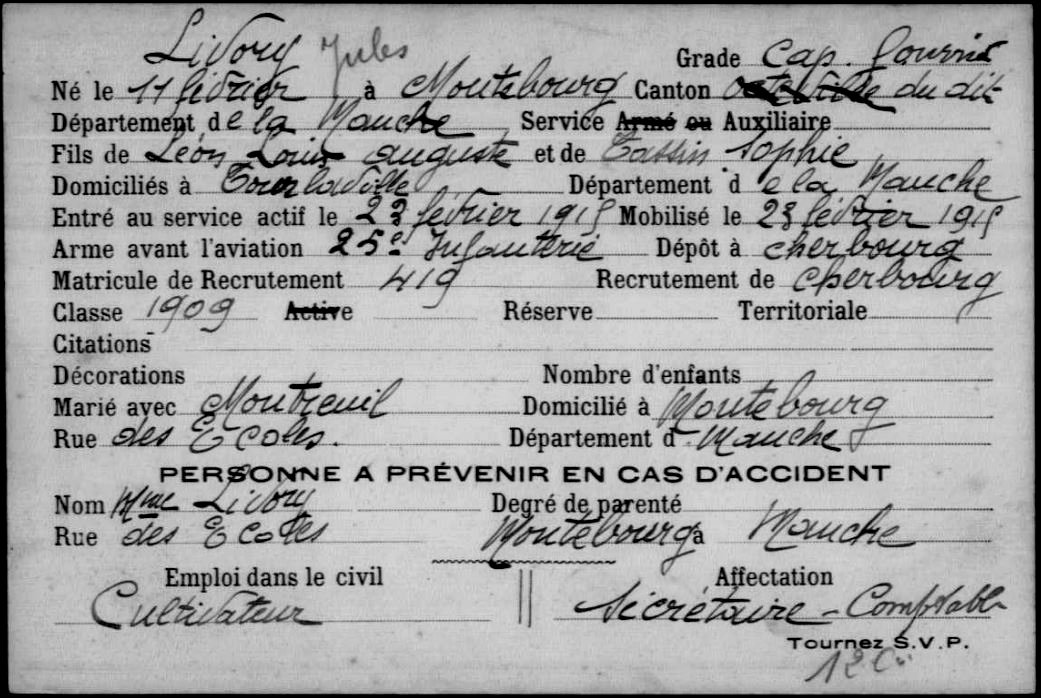 Livory Jules Grade Cap. fourrier
Né le 11 février à Montebourg Canton du dit
Département de la Manche Service Armé ou Auxiliaire
Fils de Léon Louis Auguste et de Tassin Sophie
Domiciliés à Tourlaville Département de la Manche
Entré au service actif le 23 février 1915 Mobilisé le 23 février 1915
Arme avant l'aviation 25e Infanterie Dépôt à Cherbourg
Matricule de Recrutement 419 Recrutement de Cherbourg
Classe 1909 Active Réserve Territoriale
Citations
Décorations Nombre d'enfants
Marié avec Montreuil Domicilié à Montebourg
Rue des Ecoles. Département d Manche
PERSONNE A PRÉVENIR EN CAS D'ACCIDENT
Nom Mme Livory Degré de parenté
Rue des Ecoles Montebourg à Manche
Emploi dans le civil Affectation
Cultivateur Secrétaire - Comptable
Tournez S.V.P.